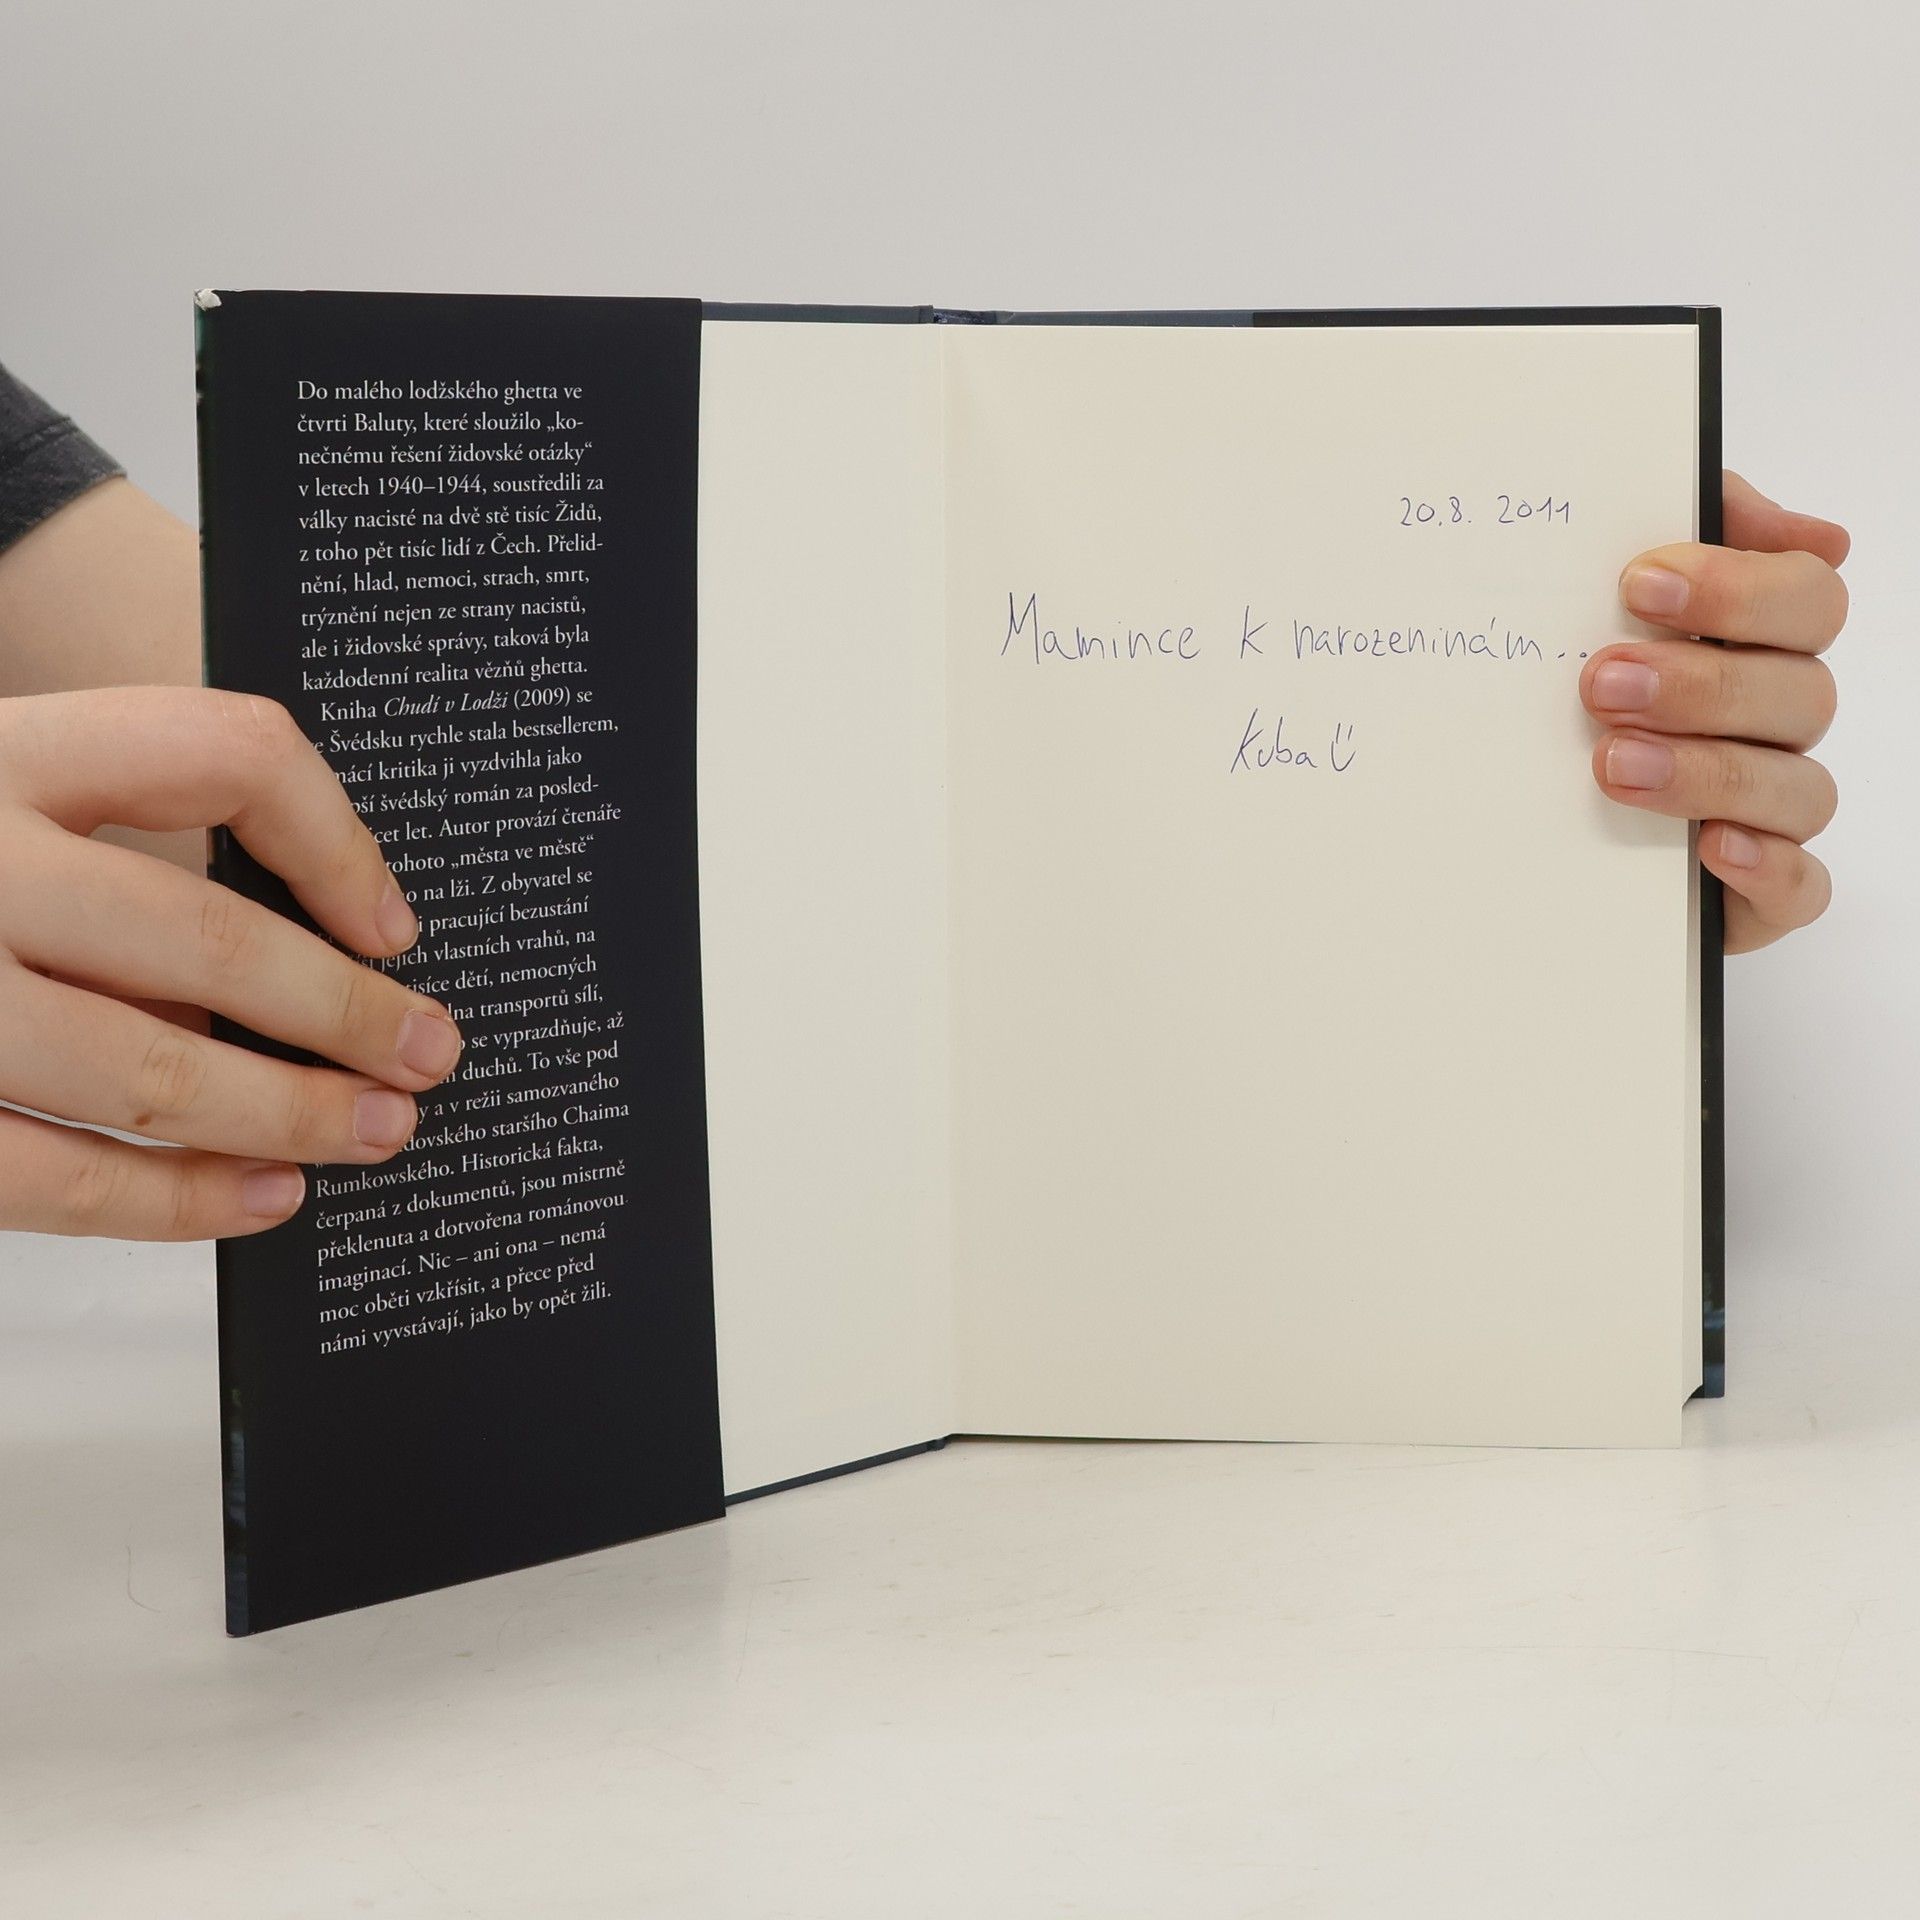 Do malého lodžského ghetta ve
čtvrti Baluty, které sloužilo „ko-
nečnému řešení židovské otázky“
v letech 1940–1944, soustředili za
války nacisté na dvě stě tisíc Židů,
z toho pět tisíc lidí z Čech. Přelid-
nění, hlad, nemoci, strach, smrt,
trýznění nejen ze strany nacistů,
ale i židovské správy, taková byla
každodenní realita vězňů ghetta.
Kniha Chudí v Lodži (2009) se
Švédsku rychle stala bestsellerem,
kritika ji vyzdvihla jako
švédský román za posled-
let. Autor provází čtenáře
tohoto „města ve městě“
na lži. Z obyvatel se
pracující bezustání
jejich vlastních vrahů, na
tisíce dětí, nemocných
transportů sílí,
se vyprazdňuje, až
duchů. To vše pod
a v režii samozvaného
staršího Chaima
Rumkowského. Historická fakta,
čerpaná z dokumentů, jsou mistrně
překlenuta a dotvořena románovou
imaginací. Nic – ani ona – nemá
moc oběti vzkřísit, a přece před
námi vyvstávají, jako by opět žili.
20.8. 2011
Mamince k narozeninám..
Kuba